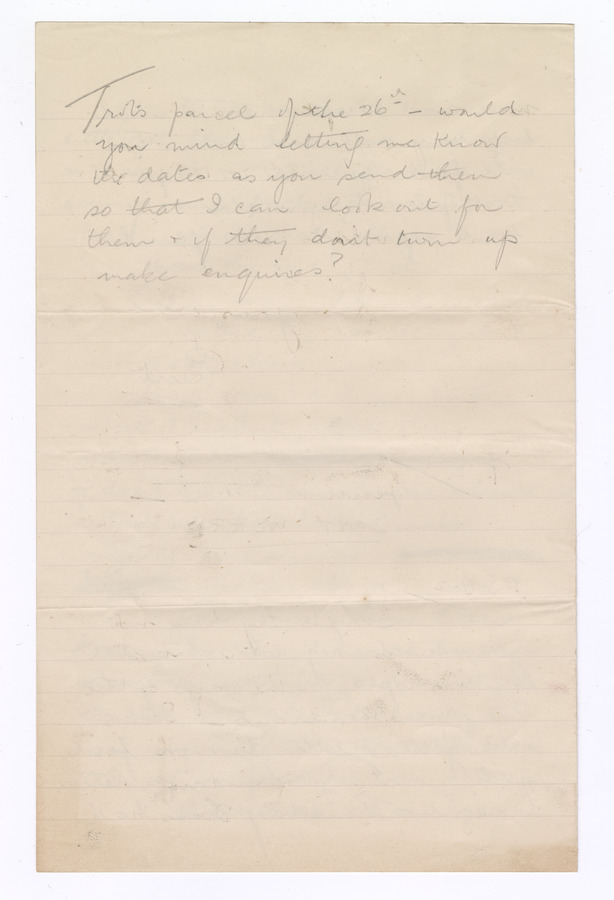 Trot's parcel of the 26th – would
you mind letting me know
the dates as you send them
so that I can look out for
them & if they don't turn up
make enquires?